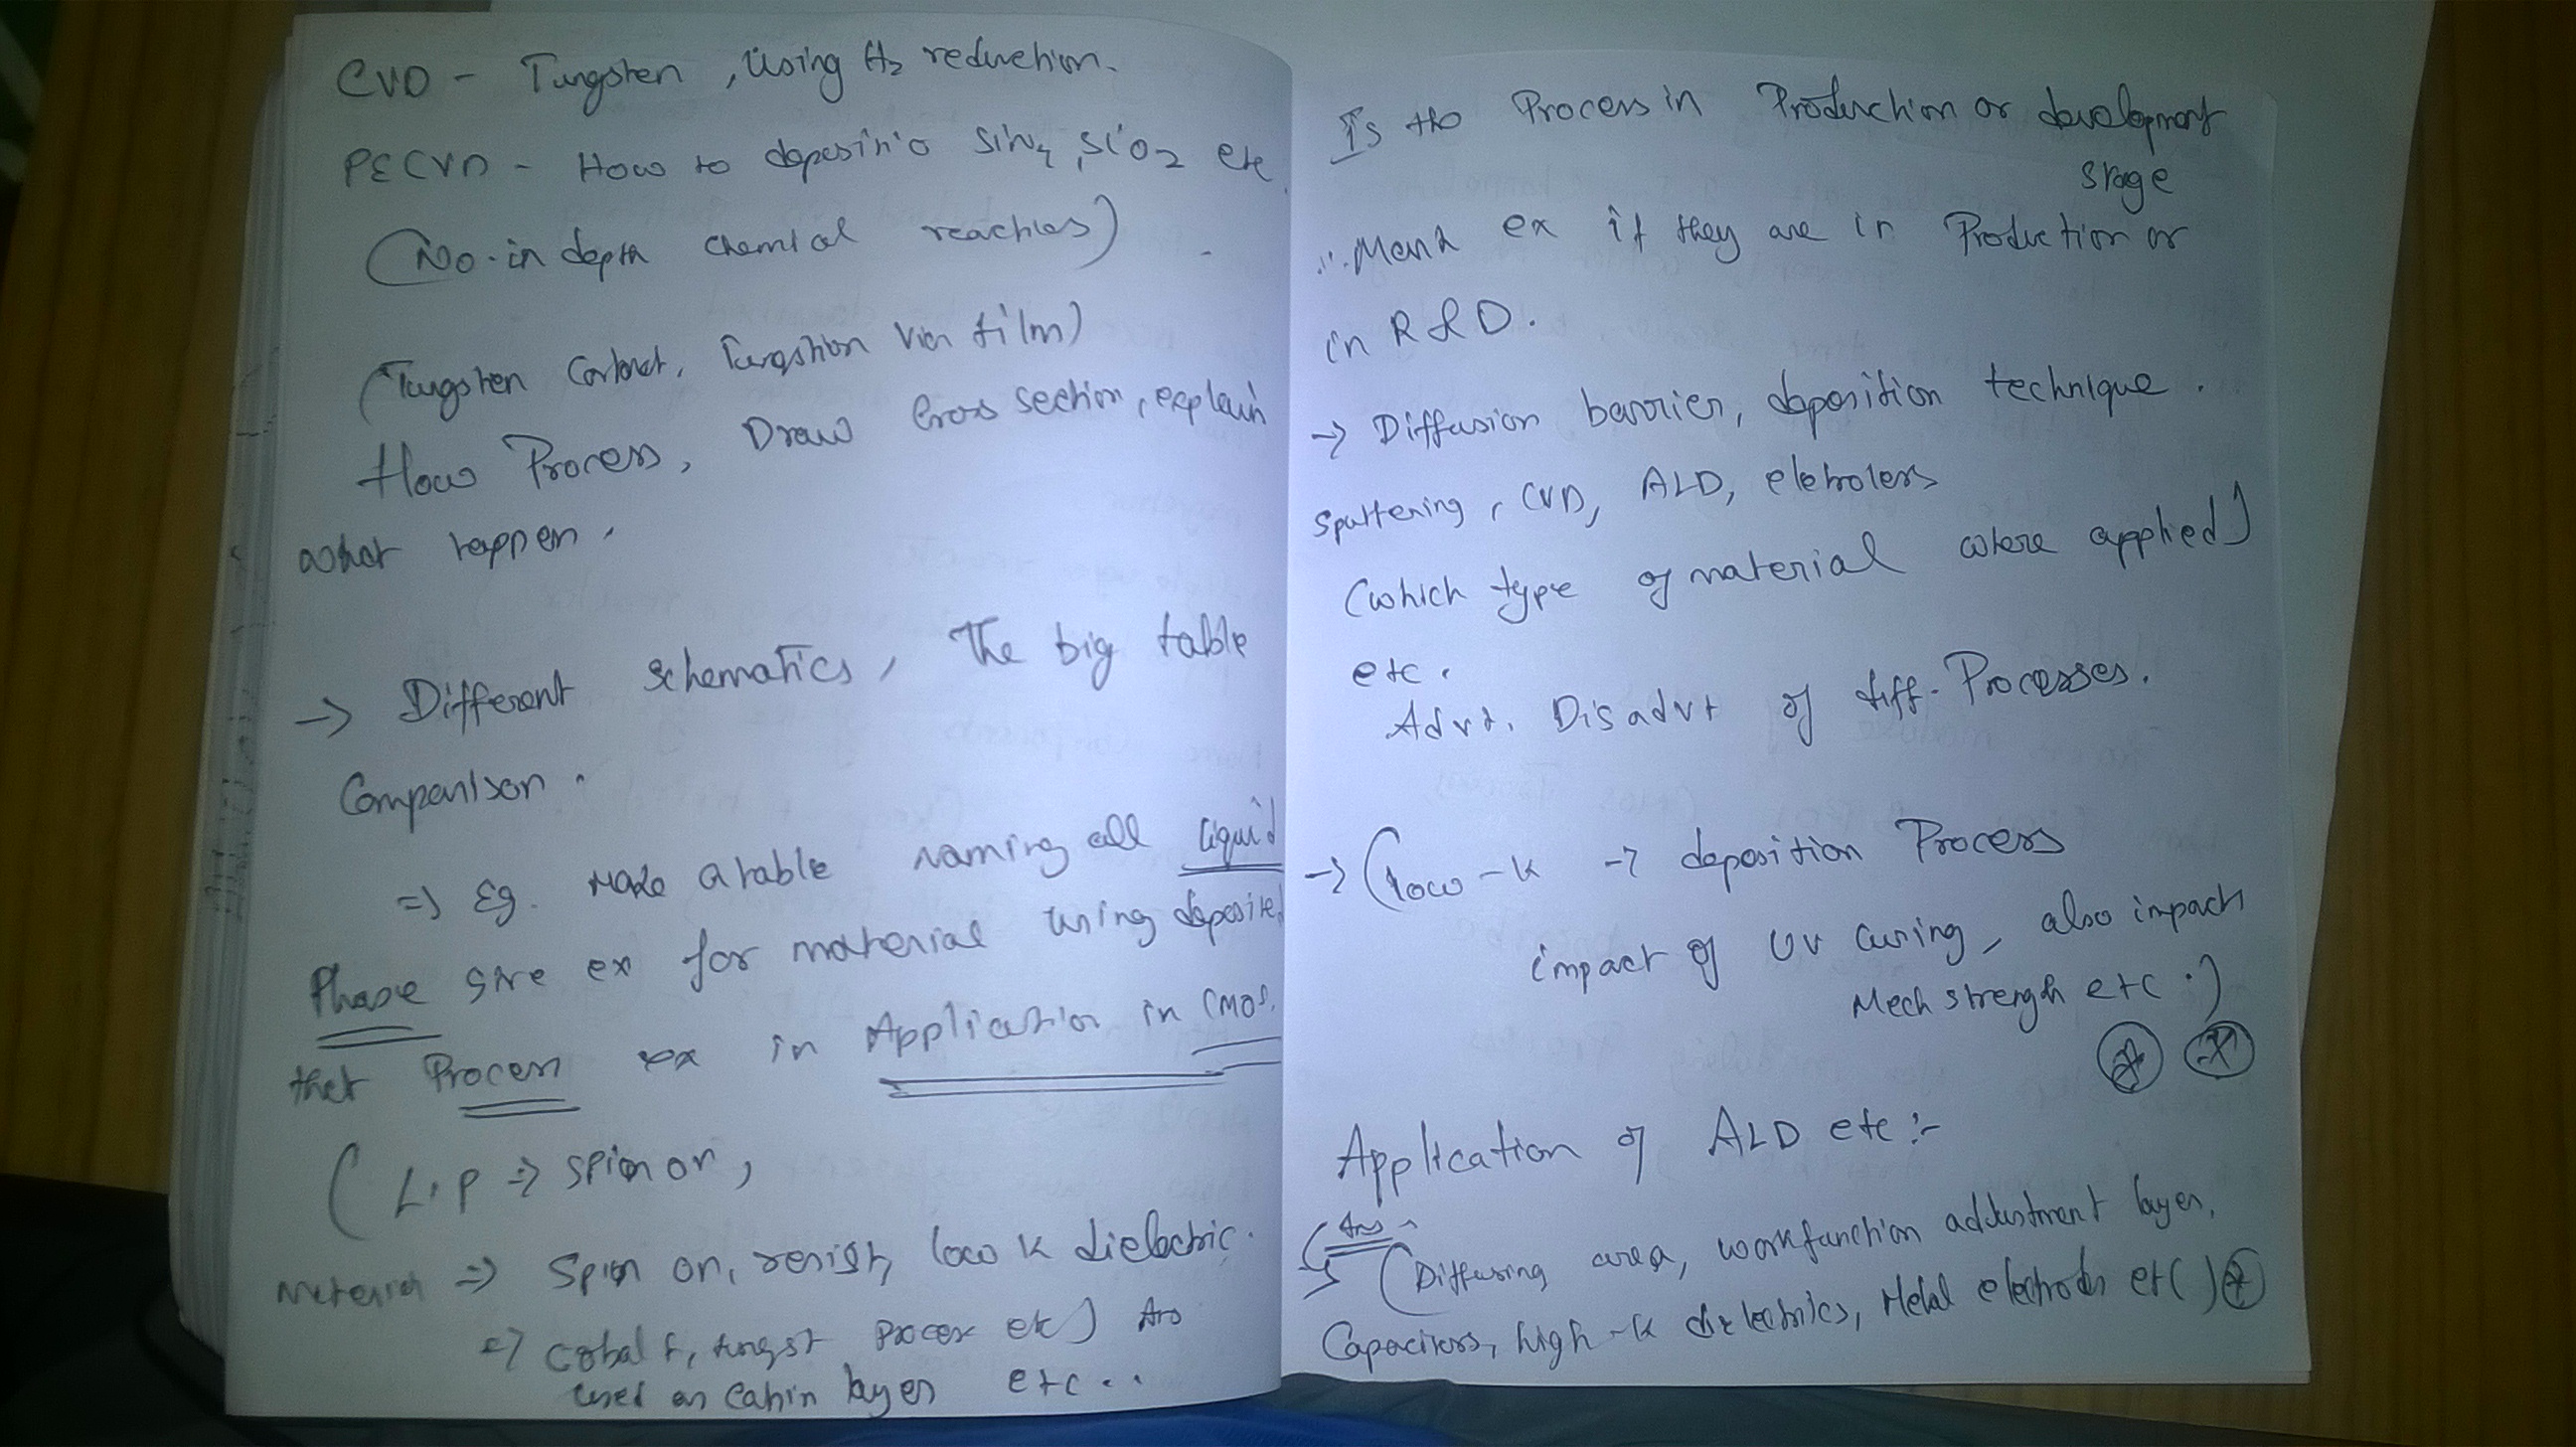 CVD - Tungsten, Using H2 reduction.
PECVD - How to SiN4, SiO2 etc.
(No. in depth chemical reactions)
(Tungsten Contact, Tungstion Via film)
flow Process, Draw Cross section, explain
what happen.
→ Different schematics, The big table
Comparison.
⇒ Eg. Make a table naming all liquid
Phase give ex for material using deposite
that Process ex in Application in CMOS.
( L.P ⇒ spin on,
Material ⇒ Spin on, resist, low K dielectric.
⇒ Cobalt, tungst process etc)
used as layer etc..
Is the Process in Production or development
stage
ex if they are in Production or
in R&D.
→ Diffusion barrier, deposition technique.
Sputtering, CVD, ALD, eletroless
(which type of material where applied)
etc.
Advt. Disadvt of diff. Processes.
→ (low-k → deposition Process
impact of UV Curing, also impach
Mech strength etc.)
Application of ALD etc :-
Ans
(Diffusing area, workfunction addustment layer,
Capacitors, high-k dielectrics, Metal electrodes etc)